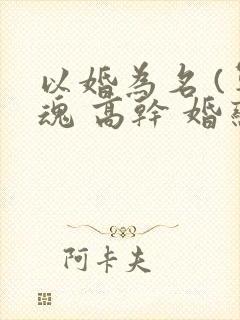 以婚為名(
魂 高幹 婚
阿卡夫